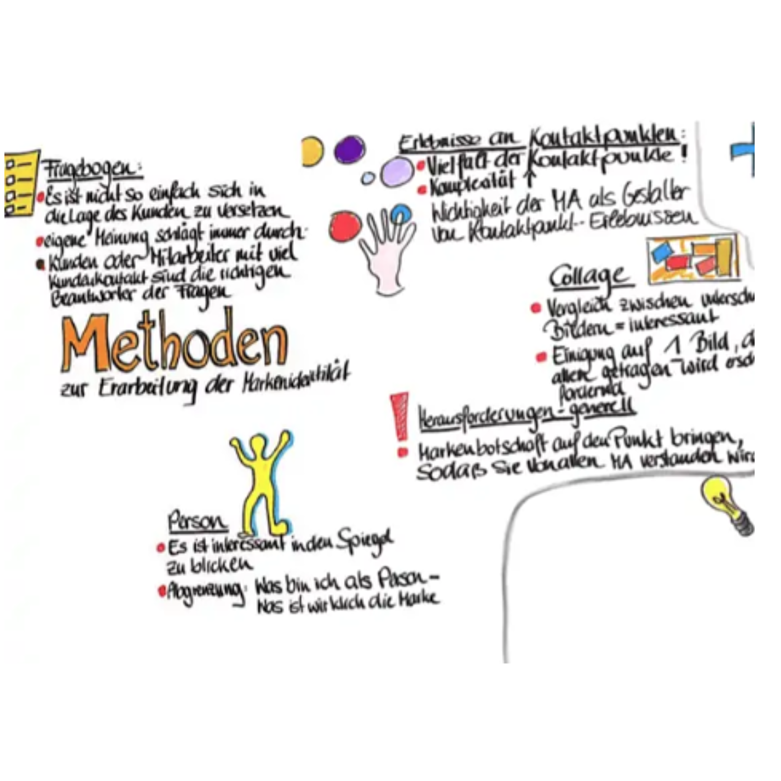 Fragebogen:
Es ist nicht so einfach sich in
die Lage des Kunden zu versetzen
eigene Meinung schlägt immer durch
Kunden oder Mitarbeiter mit viel
Kundenkontakt sind die richtigen
Beantworter der Fragen
Methoden
zur Erarbeitung der Markenidentität
Erlebnisse an Kontaktpunkten:
Vielfalt der Kontaktpunkte!
Komplexität ↑
Wichtigkeit der MA als Gestalter
von Kontaktpunkt-Erlebnissen
Collage
Vergleich zwischen untersch
Bildern = interessant
Einigung auf 1 Bild, d
allen getragen wird
fordernd
Herausforderungen - generell
Markenbotschaft auf den Punkt bringen,
sodaß sie von allen MA verstanden wird
Person
Es ist interessant in den Spiegel
zu blicken
Abgrenzung: Was bin ich als Person -
Was ist wirklich die Marke